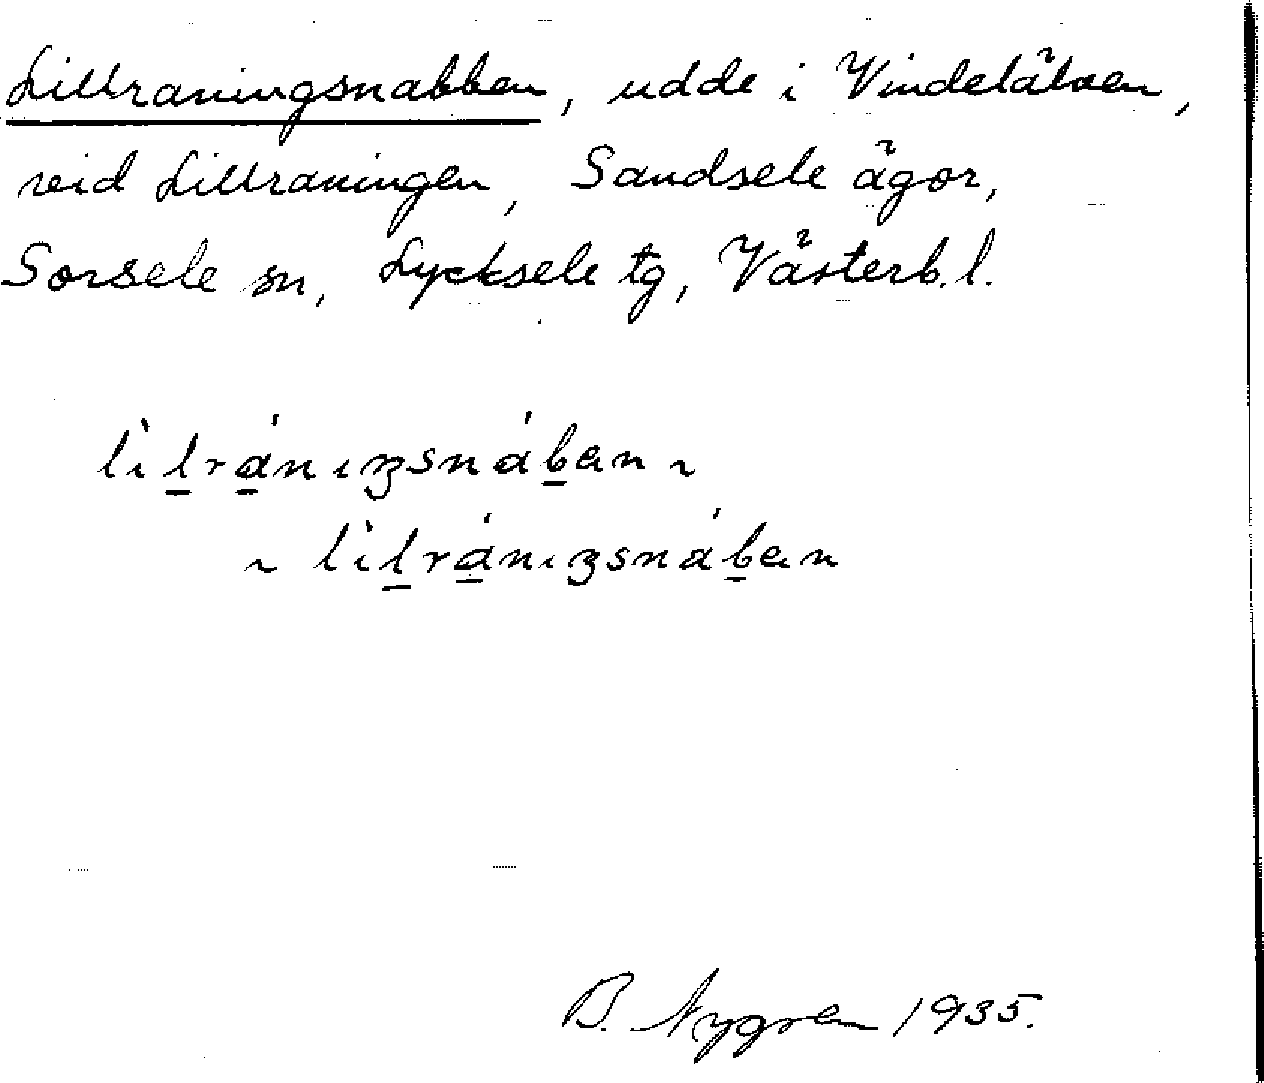 Lillraningsnabben, udde i Vindelälven,
vid Lillraningen, Sandsele ägor,
Sorsele sn, Lycksele tg, Västerb. l.
B. Nygren 1935.